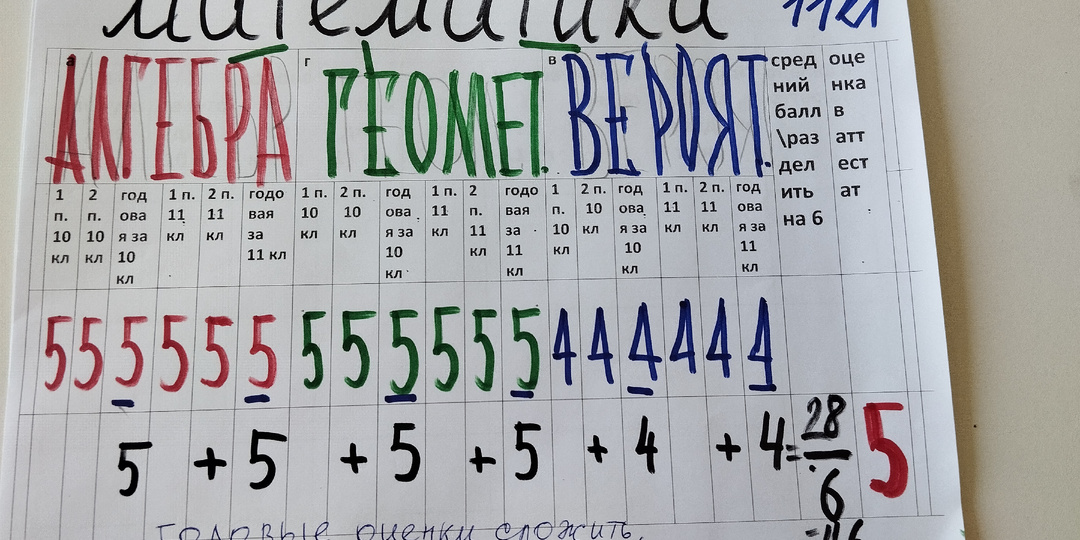 математика 11кл
а АЛГЕБРА г ГЕОМЕТ. в ВЕРОЯТ. сред ний балл \раз дел ить на 6 оце нка в атт ест ат
1 п. 10 кл 2 п. 10 кл год ова я за 10 кл 1 п. 11 кл 2 п. 11 кл годо вая за 11 кл 1 п. 10 кл 2 п. 10 кл год ова я за 10 кл 1 п. 11 кл 2 п. 11 кл годо вая за 11 кл 1 п. 10 кл 2 п. 10 кл год ова я за 10 кл 1 п. 11 кл 2 п. 11 кл год ова я за 11 кл
5 5 5 5 5 5 5 5 5 5 5 5 4 4 4 4 4 4
5 + 5 + 5 + 5 + 4 + 4 = 28/6 5
годовые оценки сложить.